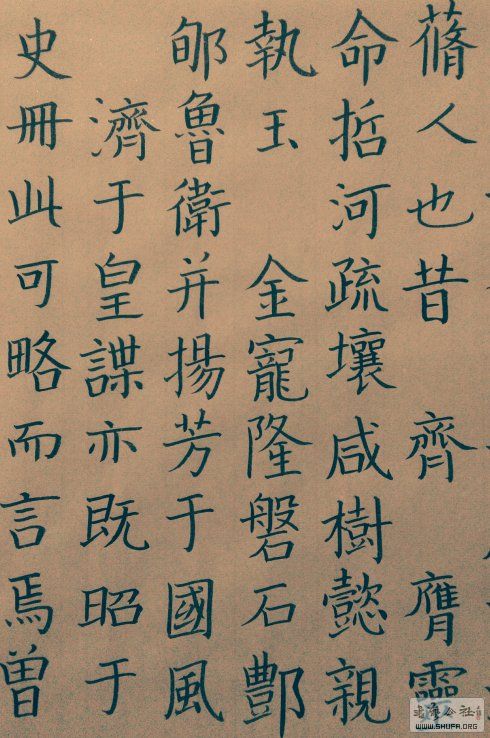 蓨人也昔齊膺靈
命哲河疏壤咸樹懿親
執玉金寵隆磐石酆
郇魯衛并揚芳于國風
濟于皇諜亦既昭于
史冊此可略而言焉曾
WWW.SHUFA.ORG